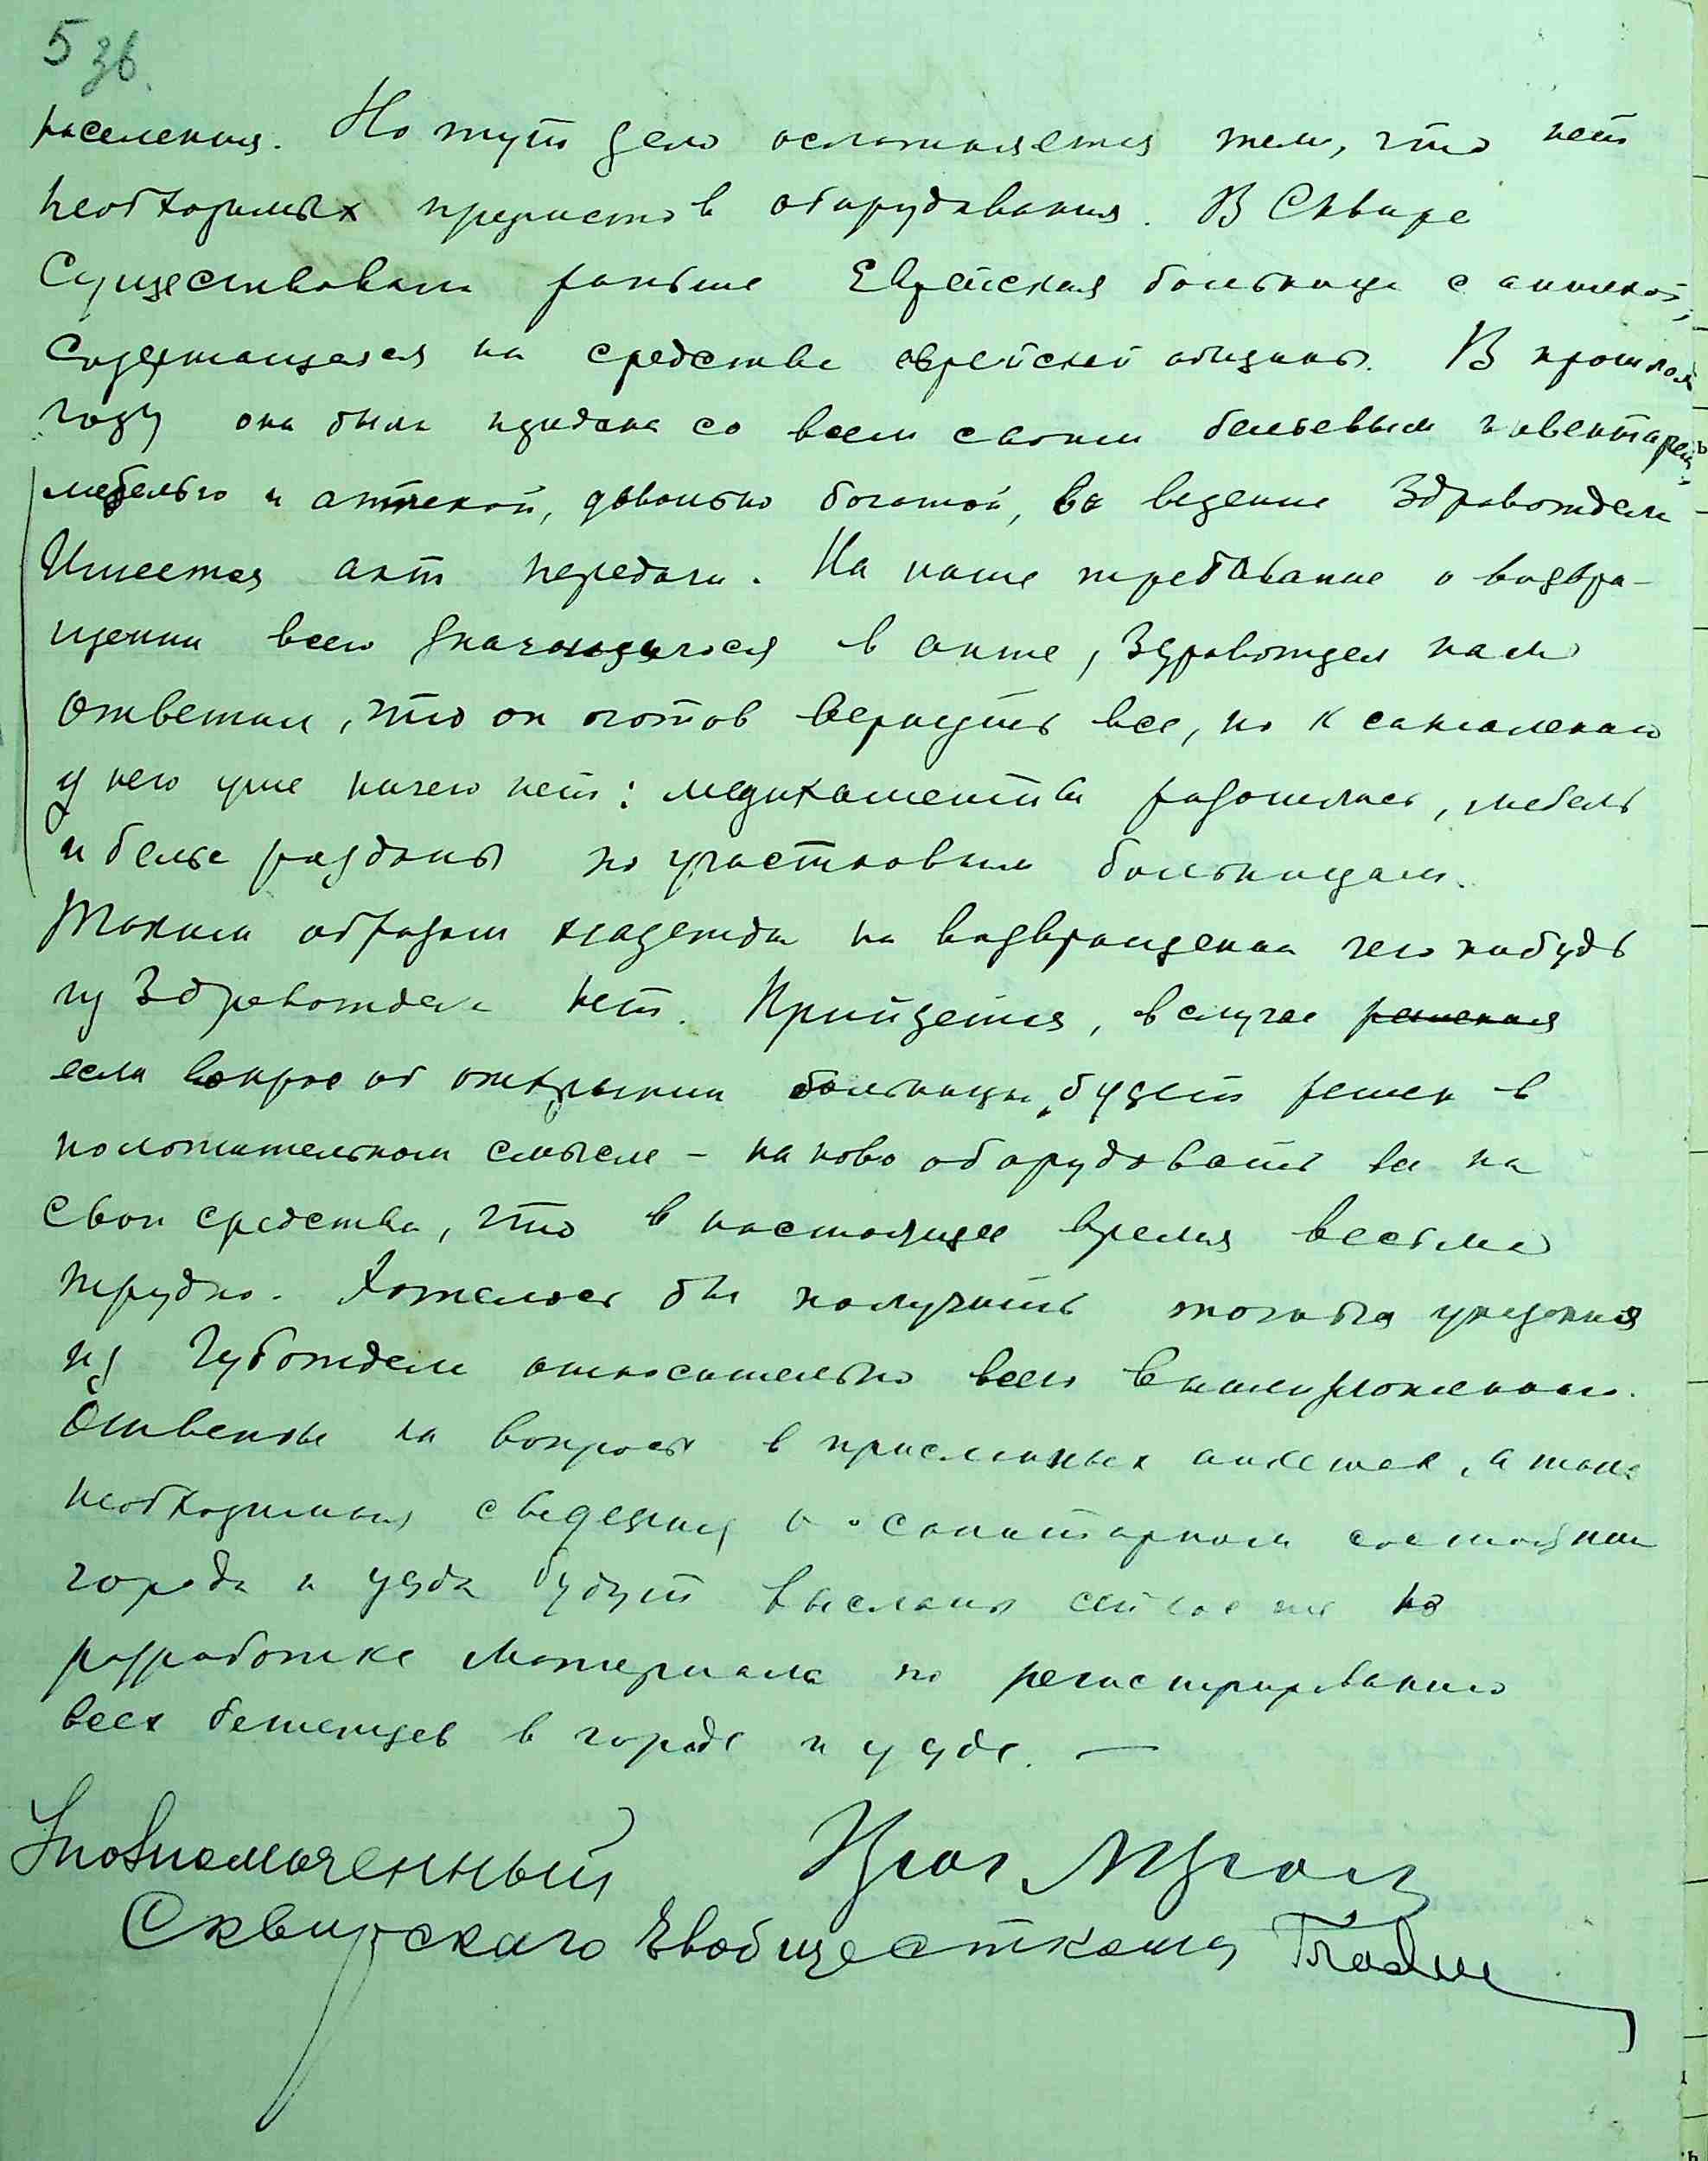 5 зв.
населения. Но тут дело осложняется тем, что нет
необходимых предметов оборудования. В Сквире
существовала раньше Еврейская больница с аптекой,
содержащаяся на средства еврейской общины. В прошлом
году она была передана со всем своим бельевым инвентарем,
мебелью и аптекой, довольно богатой, в ведение Здравотдела
Имеется акт передачи. На наше требование о возвра-
щении всего значащегося в акте, Здравотдел нам
ответил, что он готов вернуть все, но к сожалению
у него уже ничего нет: медикаменты разошлись, мебель
и белье розданы по участковым больницам.
Таким образом надежды на возвращение чего нибудь
из Здравотдела нет. Прийдется, в случае решения
если вопрос об открытии больницы будет решен в
положительном смысле – наново оборудовать ее на
свои средства, что в настоящее время весьма
трудно. Хотелось бы получить указания
из Губотдела относительно всего вышеизложенного.
Ответы на вопросы в присланных анкетах, а также
необходимыя сведения о санитарном состоянии
города и уезда будут высланы сейчас же по
разработке материала по регистрированию
всех беженцев в городе и уезде. —
Уповномоченный
Сквирскаго Евобщесткома